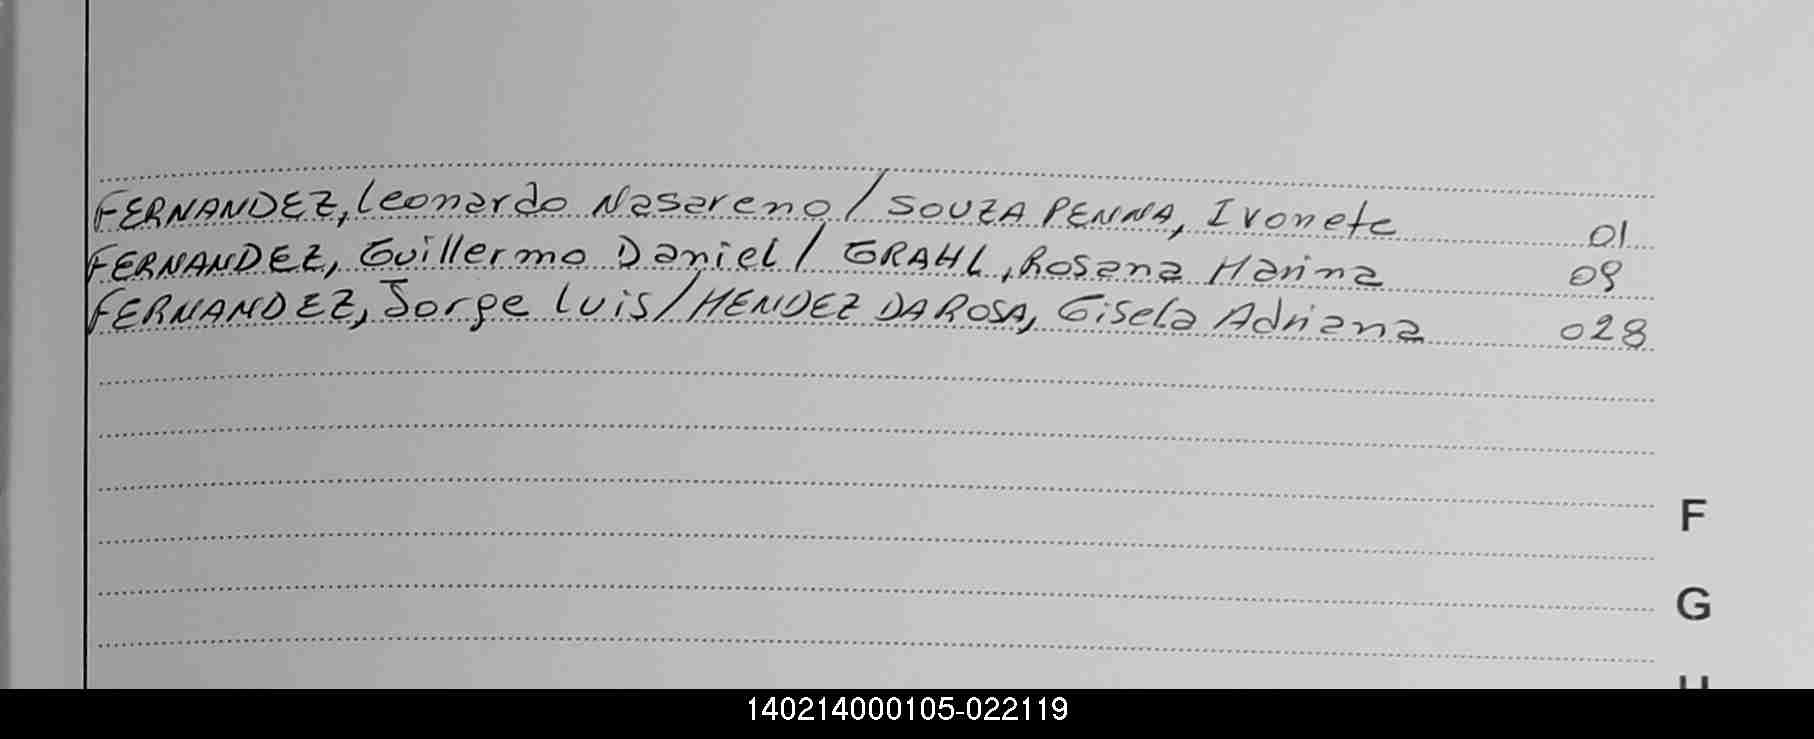 FERNANDEZ, Leonardo Nasareno / SOUZA PENNA, Ivonete 01
FERNANDEZ, Guillermo Daniel / GRAHL, Rosana Marina 09
FERNANDEZ, Jorge Luis / MENDEZ DA ROSA, Gisela Adriana 028
F
G
140214000105-022119